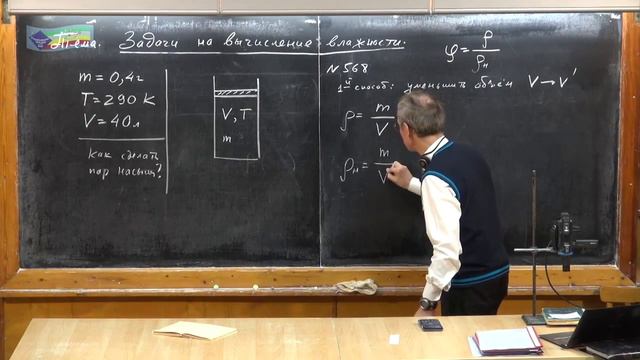 Тема. Задачи на вычисление влажности.
φ = ρ/ρн
m = 0,4 г
T = 290 К
V = 40 л
как сделать
пар насыщ?
V, T
m
N 568
1й способ: уменьшить объём V → V'
ρ = m/V
ρн = m/V